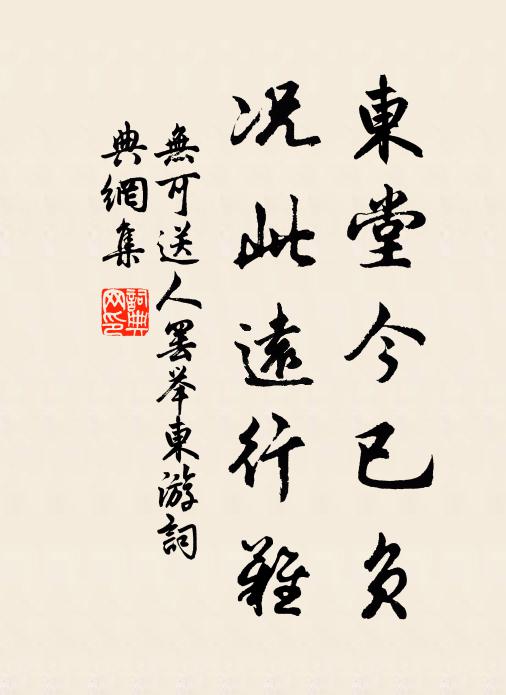 東堂今已負
況此遠行難
無可送人罢举東游詞
典網集
詞典网印